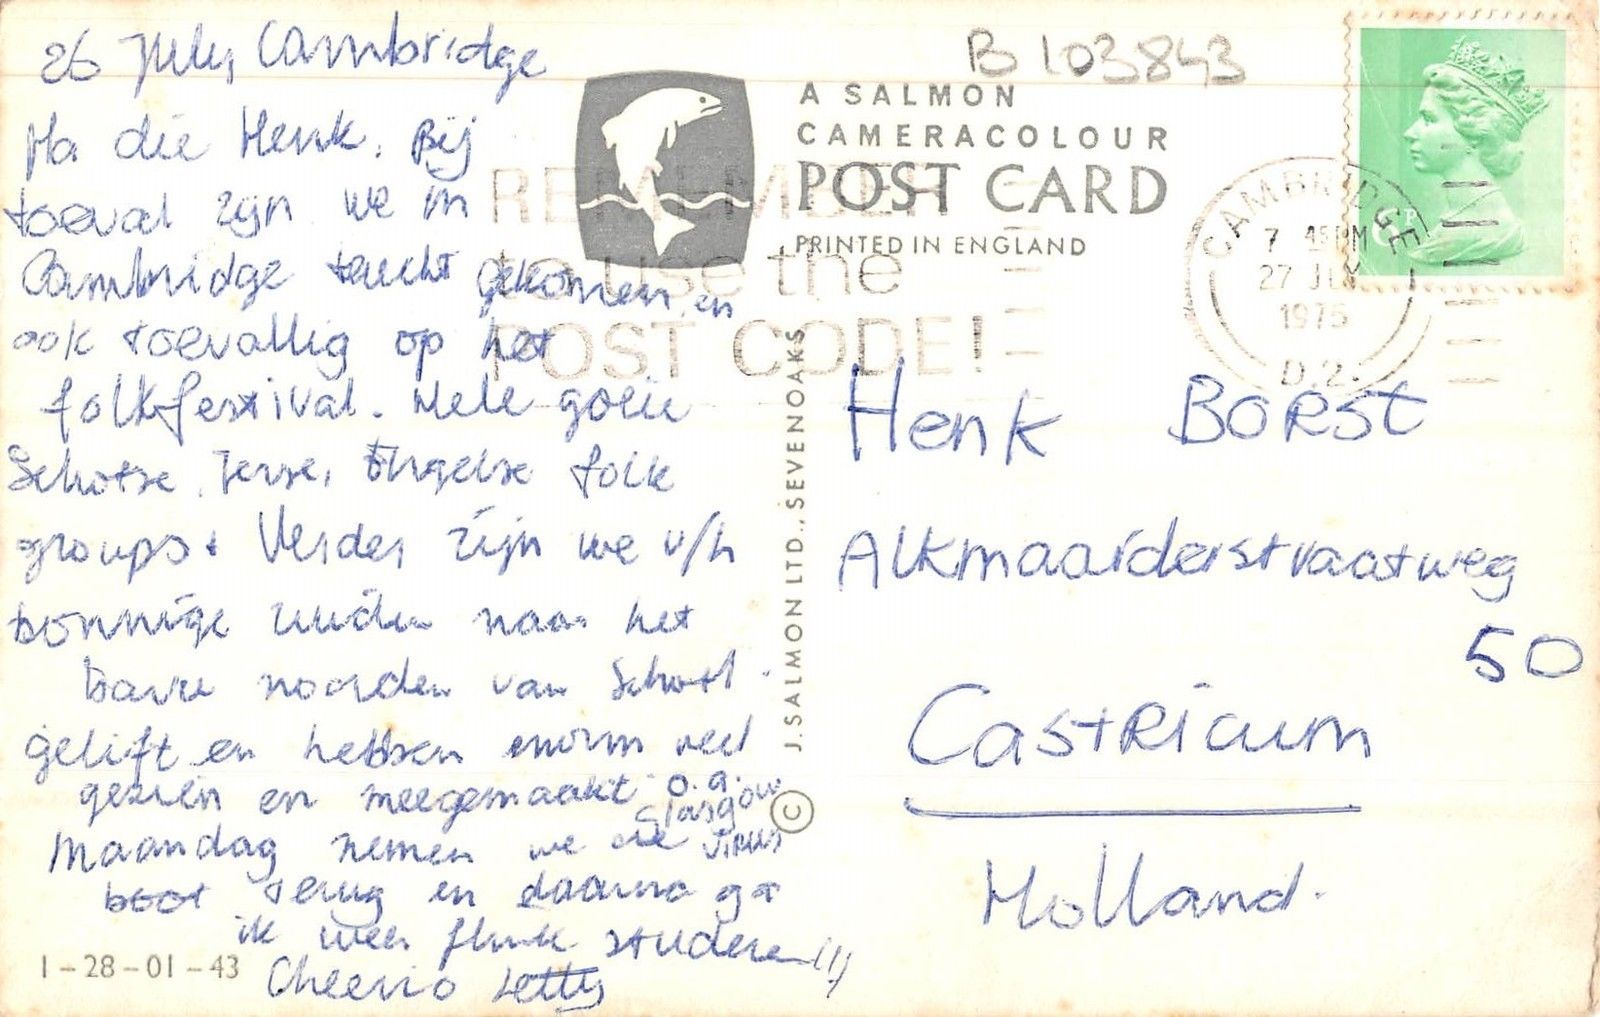 26 July, Cambridge
Ha die Henk. Bij
toeval zijn we in
Cambridge terecht gekomen en
ook toevallig op het
folkfestival. Hele goeie
Schotse, Ierse, Engelse folk
groups. Verder zijn we v/h
zonnige zuiden naar het
barre noorden van Schotl.
gelift en hebben enorm veel
gezien en meegemaakt o.a.
Glasgow
Maandag nemen we die
boot terug en daarna ga
ik weer flink studeren!!!
Cheerio Letty
1-28-01-43
B 103843
A SALMON
CAMERACOLOUR
POST CARD
PRINTED IN ENGLAND
REMEMBER
to use the
POST CODE!
CAMBRIDGE
7 45PM
27 JLY
1975
D.2.
© J. SALMON LTD., SEVENOAKS
Henk Borst
Alkmaarderstraatweg
50
Castricum
Holland.